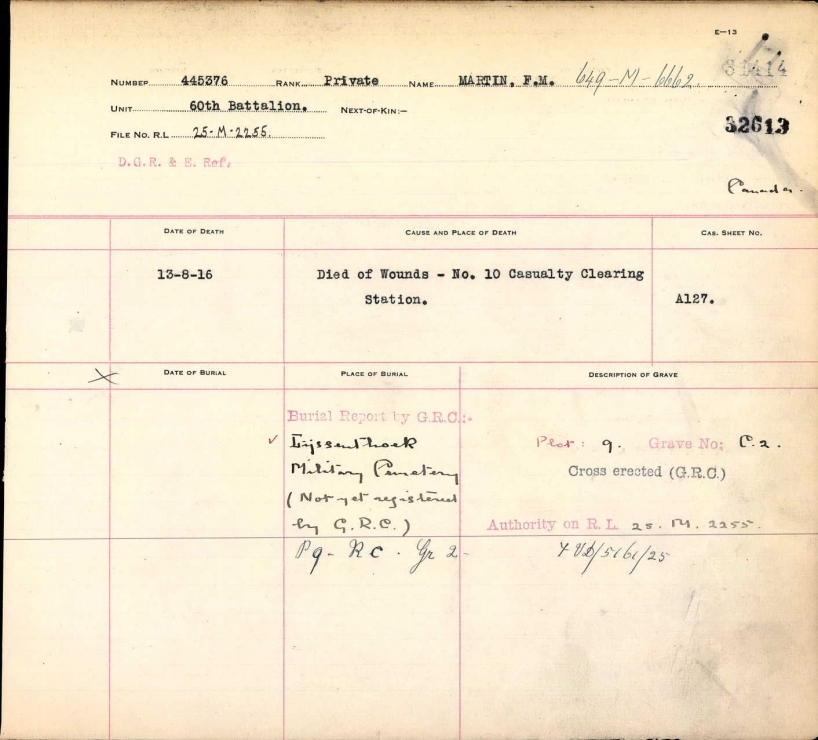 E—13
NUMBER 445376 RANK Private NAME MARTIN, F.M. 649-M-6662.
UNIT 60th Battalion. NEXT-OF-KIN:—
32613
FILE NO. R.L 25-M-2255.
D.G.R. & E. Ref.
Canada.
DATE OF DEATH CAUSE AND PLACE OF DEATH CAS. SHEET NO.
13-8-16 Died of Wounds - No. 10 Casualty Clearing
Station. A127.
DATE OF BURIAL PLACE OF BURIAL DESCRIPTION OF GRAVE
Burial Report by G.R.C.:-
Lijssenthoek Plot: 9. Grave No; C.2.
Military Cemetery Cross erected (G.R.C.)
(Not yet registered
by G.R.C.) Authority on R.L. 25. M. 2255.
P9- R C. Gr 2-